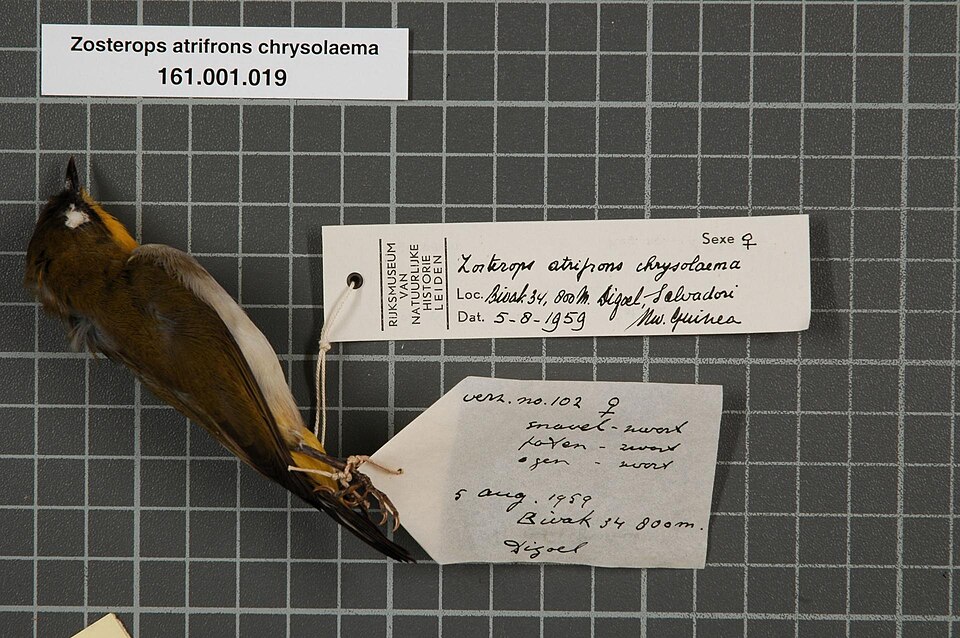 Zosterops atrifrons chrysolaema
161.001.019
RIJKSMUSEUM
VAN
NATUURLIJKE
HISTORIE
LEIDEN
Sexe ♀
Zosterops atrifrons chrysolaema
Loc. Bivak 34, 800 M. Digoel, Salvadori
Dat. 5-8-1959 Nw. Guinea
verz. no. 102 ♀
snavel - zwart
poten - zwart
ogen - zwart
5 aug. 1959
Bivak 34 800 m.
Digoel